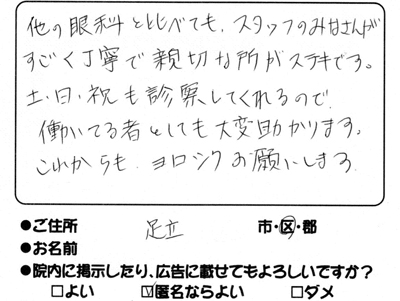 他の眼科とくらべても、スタッフのみなさんが
すごく丁寧で親切な所がステキです。
土・日・祝も診察してくれるので
働いてる者としても大変助かります。
これからも、ヨロシクお願いします
●ご住所 足立 市・区・郡
●お名前
●院内に掲示したり、広告に載せてもよろしいですか?
□よい ☑匿名ならよい □ダメ